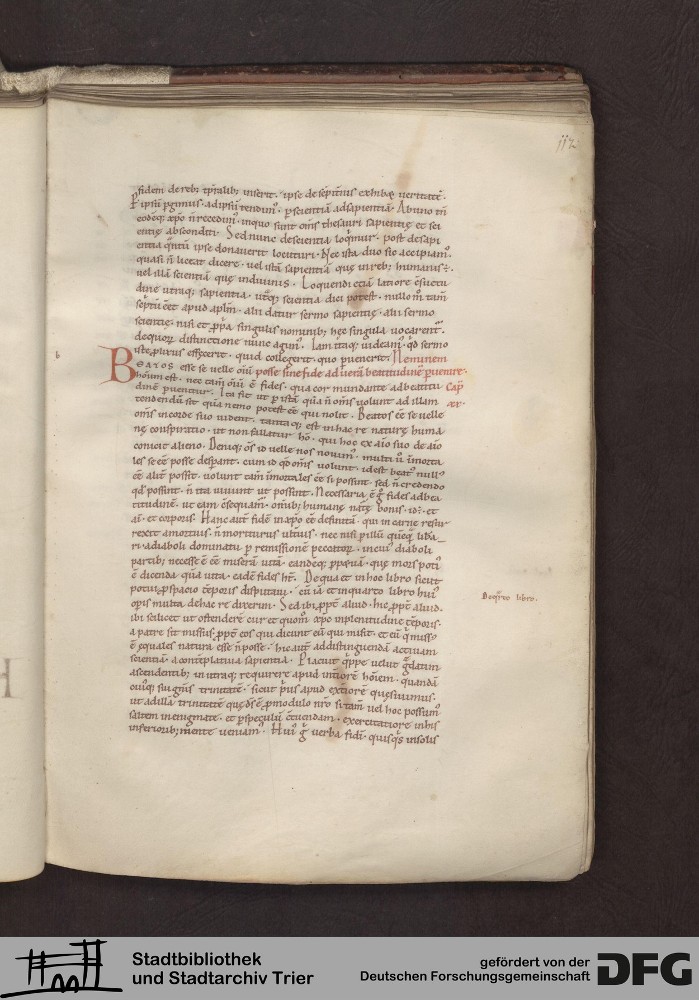 112
fidem de reb; tp̄ralib; inserit. ipse de sēpit̄nis exhibę ueritatē.
P ipsū pgimus. ad ipsū tendim᷒. p scientiā ad sapientiā. Ab uno tn̄
eodēq; xp̄o n̄ recedim᷒. in quo sunt om̄s thesauri sapientię et sci
entię absconditi. Sed nunc de scientia loq̄mur. post de sapi
entia q̄ntū ipse donauerit locuturi. Nec ista duo sic accipiam᷒.
quasi n̄ liceat dicere. uel istā sapientiā quę in reb; humanis ÷.
uel illā scientiā quę in diuinis. Loquendi eni latiore c̄suetu
dine utraq; sapientia. utq; scientia dici potest. nullo m᷒ tam̄
sc̄ptū eēt apud apl̄m. alii datur sermo sapientię. alii sermo
scientię. nisi et p̄pria singulis nominib; hęc singula uocarent᷒.
de quoꝝ distinctione nunc agim᷒. Iam itaq; uideam᷒. qd̄ sermo
iste plixus effecerit. quid collegerit. quo puenerit. Neminem
BEATOS esse se uelle oīū posse sine fide ad uerā beatitudinē puenire.
hōum est. nec tam̄ oīū ē fides. qua cor mundante ad beatitu Cap̄
dinē puenitur. Ita fit ut p istā quā n̄ om̄s uolunt ad illam xx.
tendendū sit quā nemo potest eē qui nolit. Beatos eē se uelle
om̄s in corde suo uident. tantaq; est in hac re naturę huma
nę conspiratio. ut non fallatur hō. qui hoc ex aīo suo de aīo
conicit alieno. Deniq; oīs id uelle nos nouim᷒. multi u᷒ īmorta
les se eē posse despant. cum id qd̄ om̄s uolunt. id est beat᷒ null᷒
eē alit̄ possit. uolunt tam̄ īmortales eē si possint. sed n̄ credendo
qd̄ possint. n̄ ita uiuunt ut possint. Necessaria ē g᷒ fides ad bea
titudinē. ut eam c̄sequam᷒. om̄ib; humanę natu᷒ę bonis. id ÷ et
aī. et corporis. Hanc aut̄ fidē in xp̄o eē definitā. qui in carne resur
rexit a mortuis. n̄ moriturus ult̄ius. nec nisi p illū quēq̄ libe
rari a diaboli dominatu p remissionē peccatoꝝ. in cui᷒ diaboli
partib; necesse ē eē miserā uitā. eandēq; ppetuā. quę mors poti᷒
ē dicenda quā uita. eadē fides ht̄. De qua et in hoc libro sicut
potui p spacio tēporis disputaui. cū iā et in quarto libro hui᷒ De q̄rto libro.
opis multa de hac re dixerim. Sed ibi ppt̄ aliud. hic ppt̄ aliud.
ibi scilicet ut ostenderē cur et quom᷒ xp̄c in plenitudine tēporis
a patre sit missus. ppt̄ eos qui dicunt eū qui misit. et eū q᷒ miss᷒
ē equales natura esse n̄ posse. hic aut̄ ad distinguendā actiuam
scientiā. a contēplatiua sapientia. Placuit q᷒ppe uelut g᷒datim
ascendentib; in utraq; requirere apud int̄iorē hōiem. quandā
cuiq; sui gn̄is trinitatē. sicut p᷒us apud ext̄iorē quęsiuimus.
ut ad illā trinitatē quę ds̄ ē p modulo nr̄o si tam̄ uel hoc possum᷒
saltem in enigmate. et p speculū c̄tuendam. exercitatiore in his
inferiorib; mente ueniam᷒. Hui᷒ g᷒ uerba fidi. quisq᷒s in solis
b
H
Stadtbibliothek
und Stadtarchiv Trier
gefördert von der
Deutschen Forschungsgemeinschaft
DFG